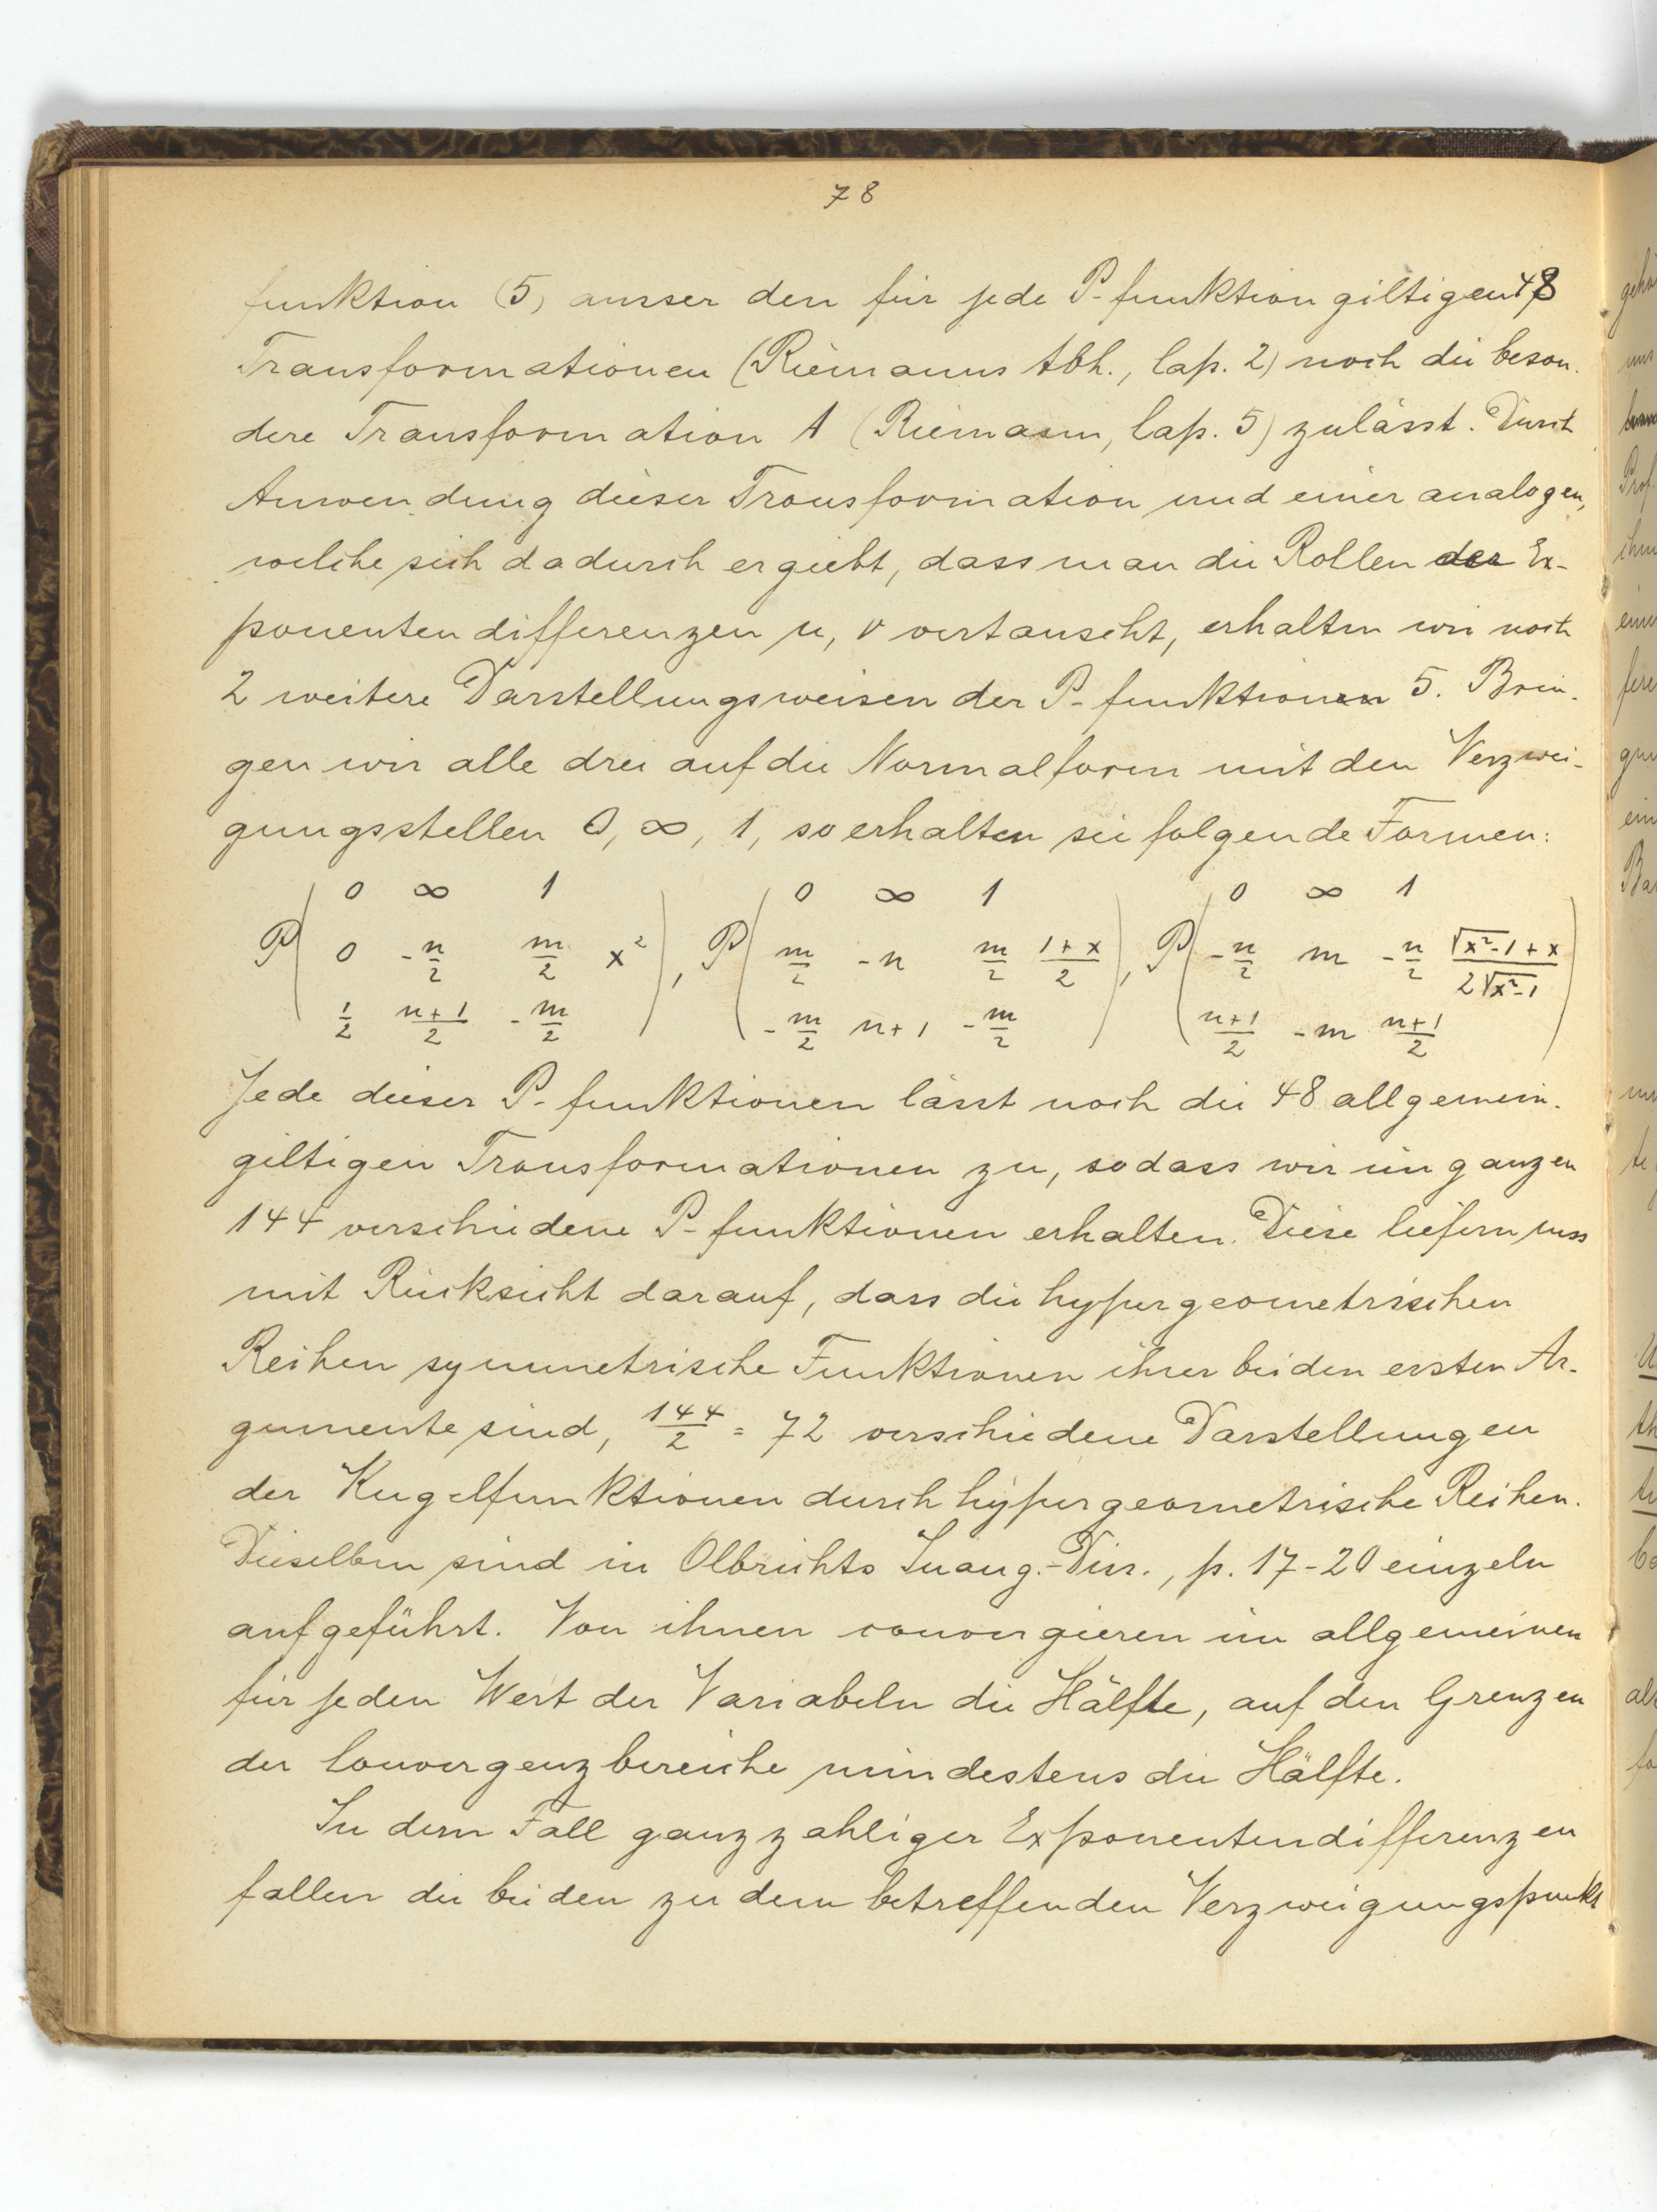 78
funktion (5) ausser den für jede P-funktion giltigen 48
Transformationen (Riemanns Abh., Cap. 2) noch die beson-
dere Transformation A (Riemann, Cap. 5) zulässt. Durch
Anwendung dieser Transformation und einer analogen,
welche sich dadurch ergiebt, dass man die Rollen der Ex-
ponentendifferenzen μ, ν vertauscht, erhalten wir noch
2 weitere Darstellungsweisen der P-funktionen 5. Brin-
gen wir alle drei auf die Normalform mit den Verzwei-
gungsstellen 0, ∞, 1, so erhalten sie folgende Formen:
0 ∞ 1 0 ∞ 1 0 ∞ 1
P( 0 -n/2 m/2 x² ), P( m/2 -n m/2 (1+x)/2 ), P( -n/2 m -n/2 (√x²-1+x)/(2√x²-1) )
1/2 (n+1)/2 -m/2 -m/2 n+1 -m/2 (n+1)/2 -m (n+1)/2
Jede dieser P-funktionen lässt noch die 48 allgemein-
giltigen Transformationen zu, sodass wir im ganzen
144 verschiedene P-funktionen erhalten. Diese liefern uns
mit Rücksicht darauf, dass die hypergeometrischen
Reihen symmetrische Funktionen ihrer beiden ersten Ar-
gumente sind, 144/2 = 72 verschiedene Darstellungen
der Kugelfunktionen durch hypergeometrische Reihen.
Dieselben sind in Olbrichts Inaug.-Diss., p. 17-20 einzeln
aufgeführt. Von ihnen convergieren im allgemeinen
für jeden Wert der Variabeln die Hälfte, auf den Grenzen
der Convergenzbereiche mindestens die Hälfte.
In dem Fall ganzzahliger Exponentendifferenzen
fallen die beiden zu dem betreffenden Verzweigungspunkt